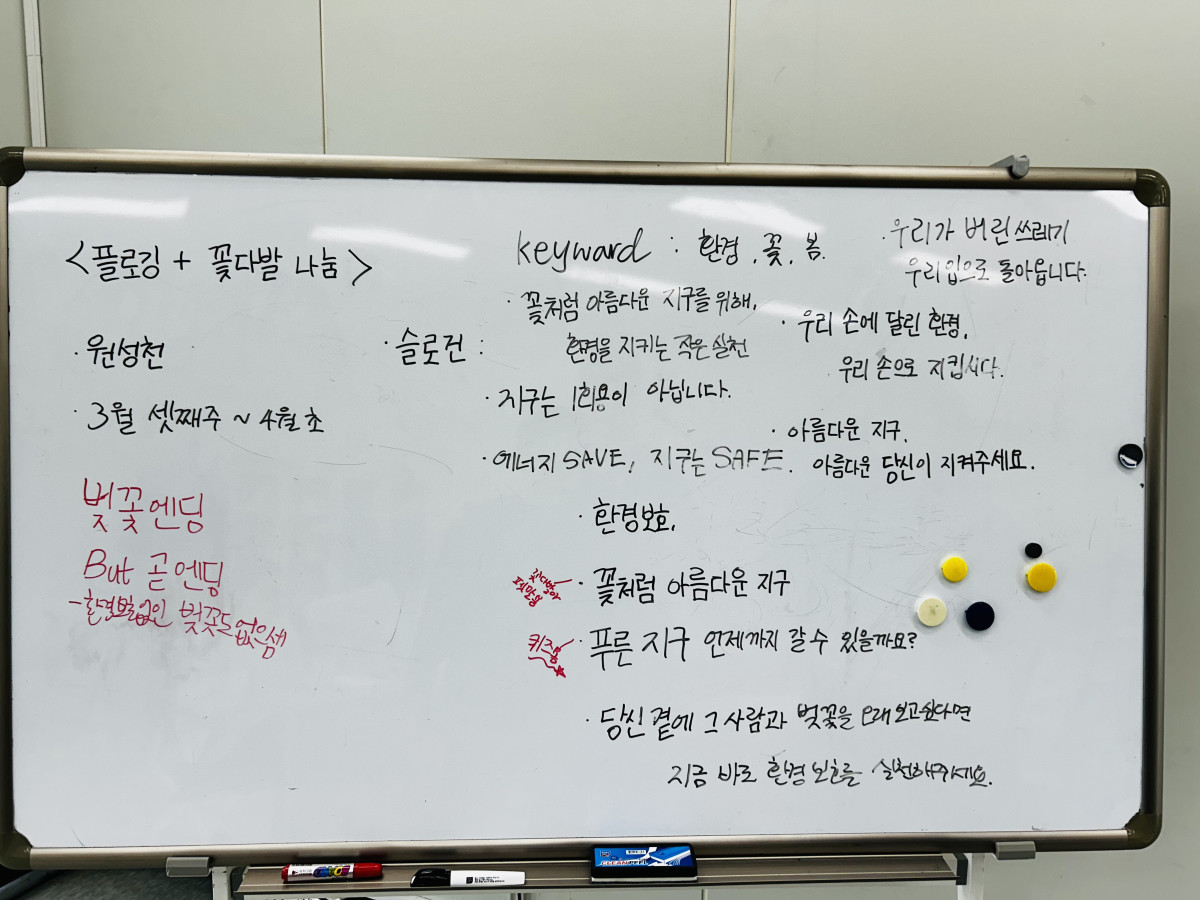 <플로깅 + 꽃다발 나눔>
· 원성천
· 3월 셋째주 ~ 4월 초
벚꽃엔딩
But 곧 엔딩
벚꽃도 없음
keyward : 환경, 꽃, 봄.
· 슬로건 :
· 꽃처럼 아름다운 지구를 위해,
환경을 지키는 작은 실천
· 지구는 1회용이 아닙니다.
· 에너지 SAVE, 지구는 SAFE.
· 우리가 버린 쓰레기
우리 입으로 돌아옵니다.
· 우리 손에 달린 환경,
우리 손으로 지킵시다.
· 아름다운 지구,
아름다운 당신이 지켜주세요.
· 환경보호,
· 꽃처럼 아름다운 지구
퀴즈용
· 푸른 지구 언제까지 갈 수 있을까요?
· 당신 곁에 그 사람과 벚꽃을 오래 보고싶다면
지금 바로 환경 보호를 실천해주세요.